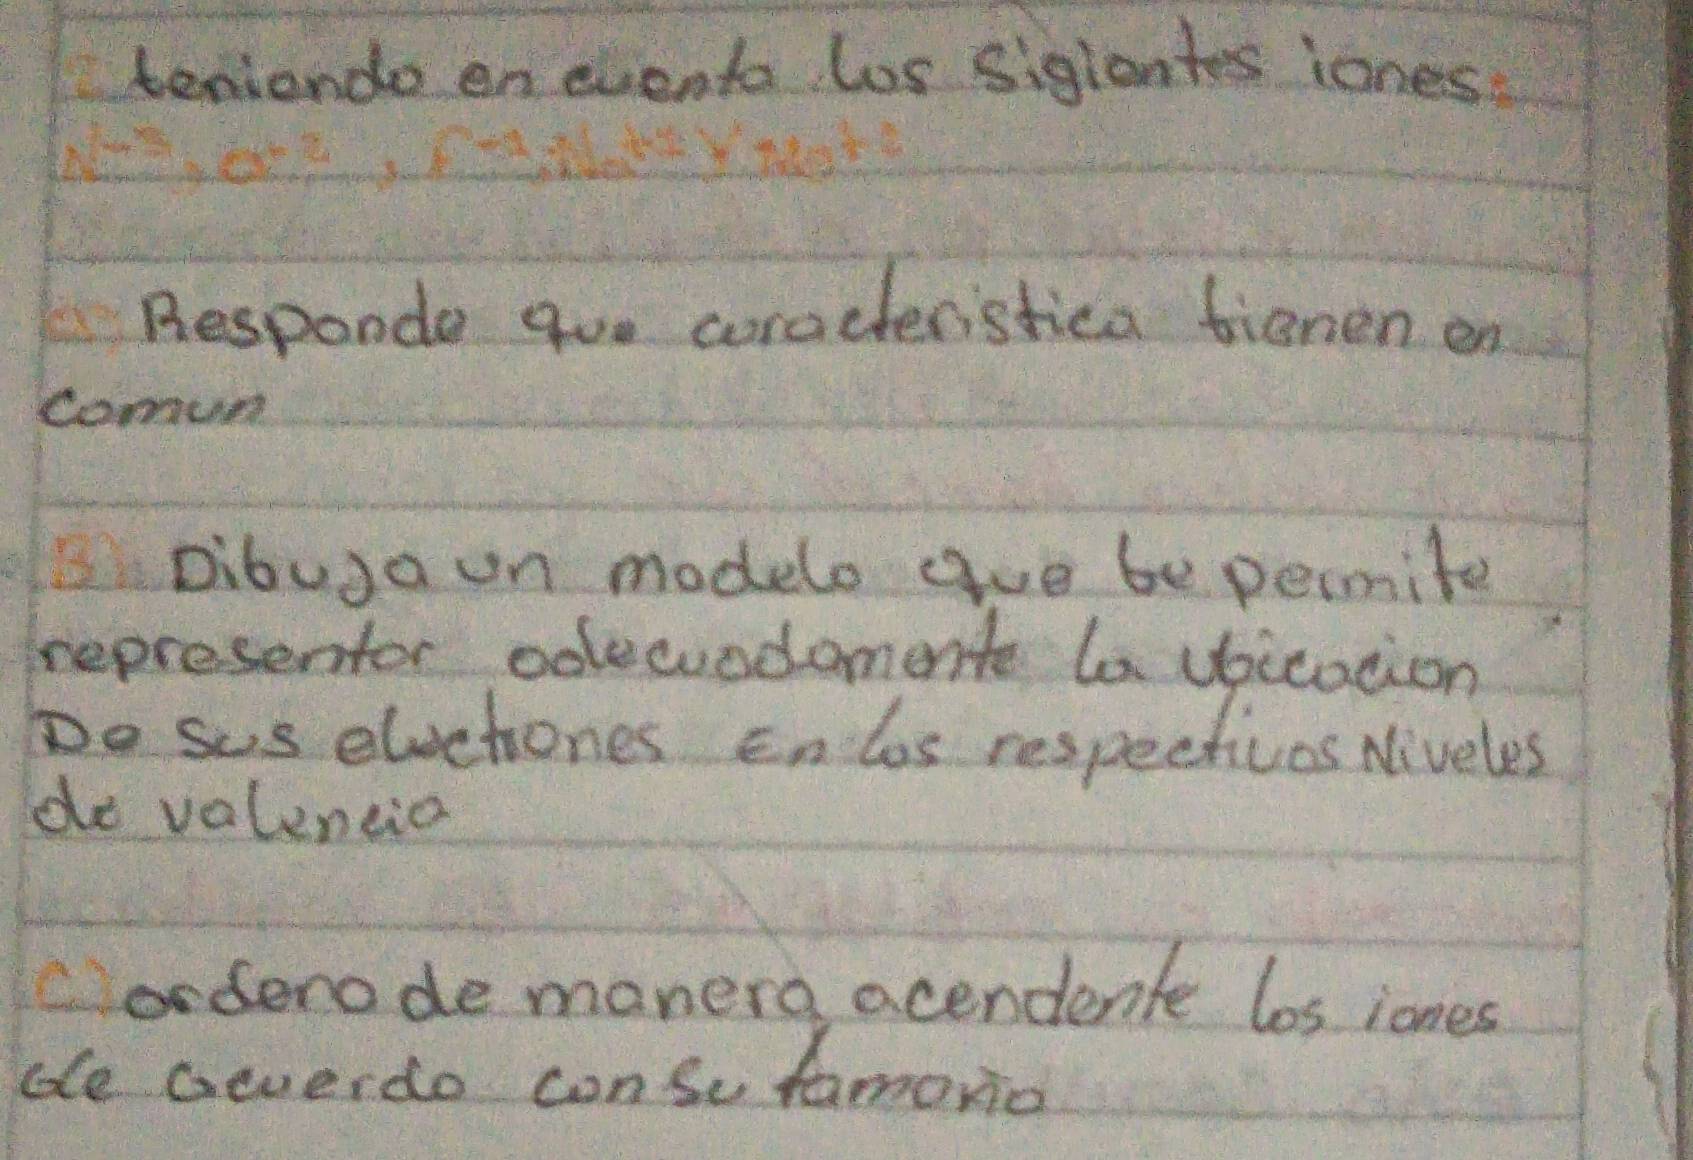 2 teniendo en cuenta los sigientes iones:
N-3, O-2, F-1, Na+1 Y Mg+2
a) Responde que caracteristica tienen en
comun
B) Dibuja un modelo que te permite
representar adecuadamente la ubicacion
De sus electrones En los respectivos Niveles
de valencia
C) ordeno de manera acendente los iones
de acuerdo con su tamaño